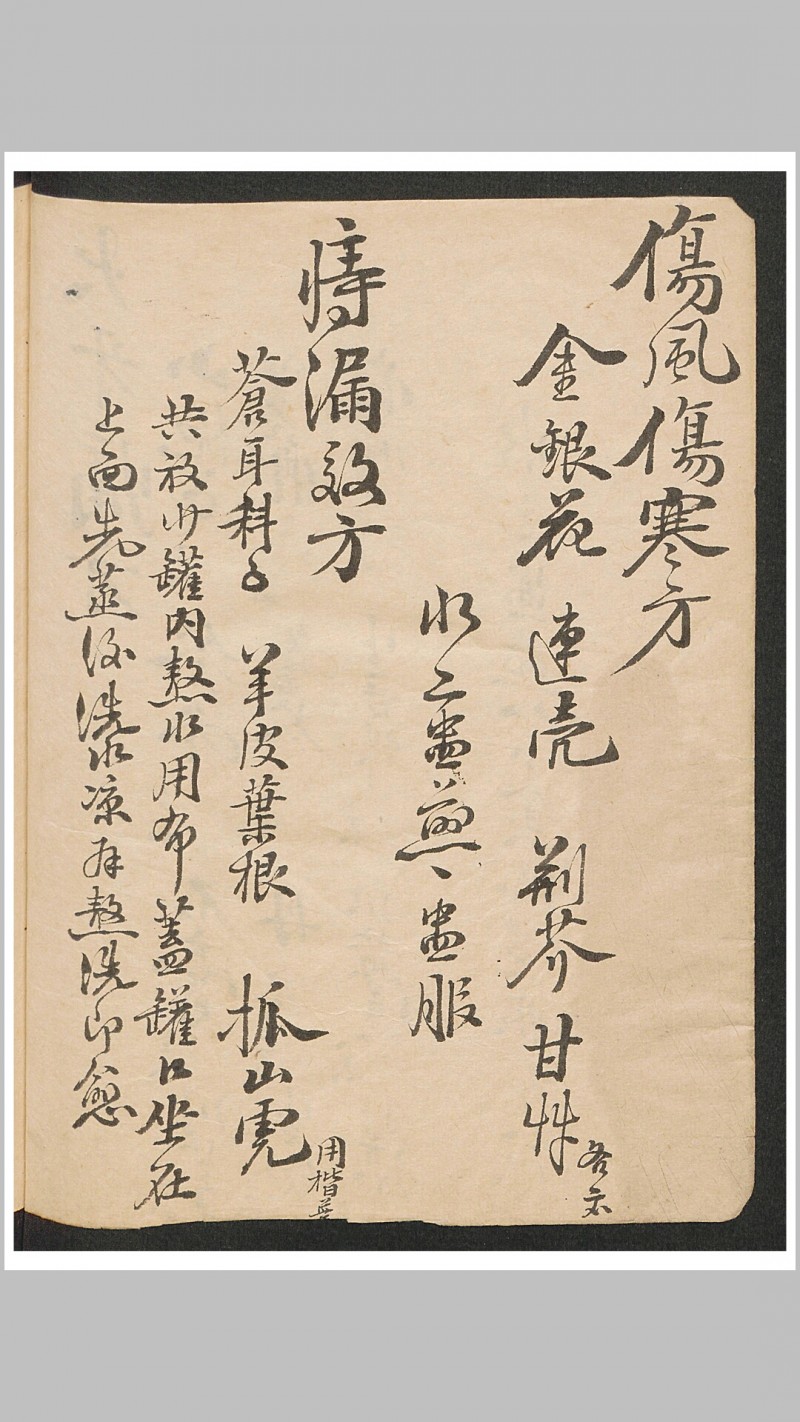 傷風傷寒方
金銀花 連壳 荆芥 甘艸
各
水二盅煎、盅服
痔漏效方
蒼耳科子 羊皮葉根 抓山虎
用楷
共放 罐内熬水用布蓋罐口坐在
上面先蒸後洗水凉再熬洗即愈